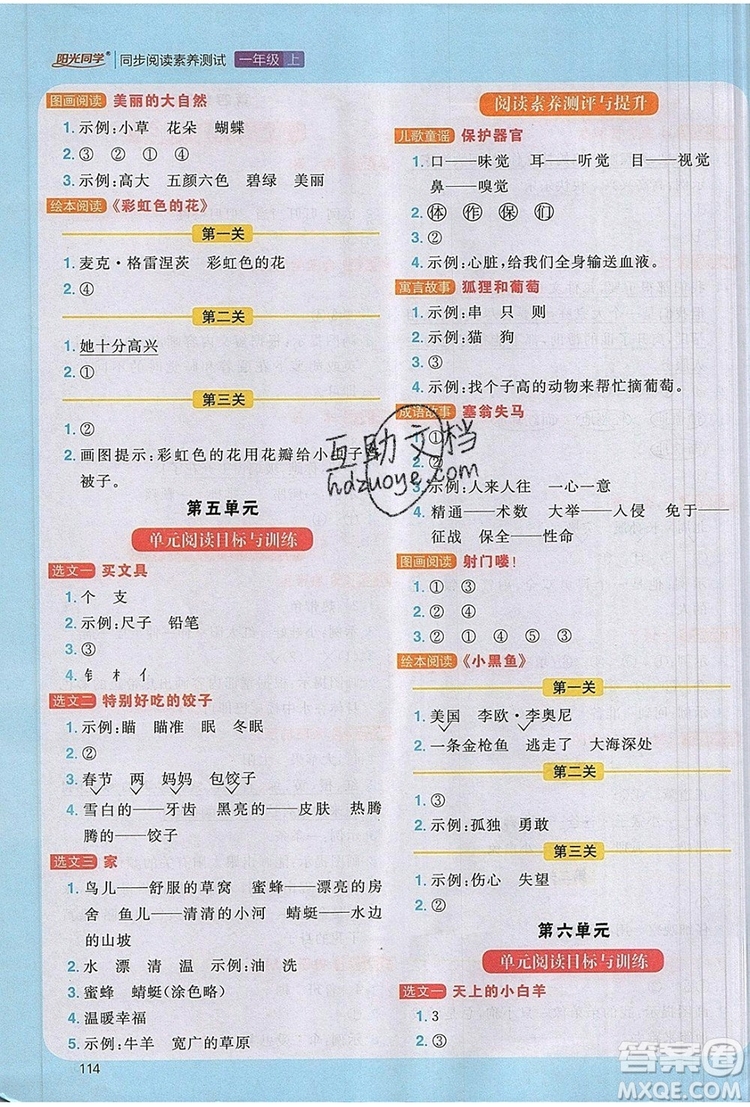 阳光同学® 同步阅读素养测试 一年级 上
图画阅读 美丽的大自然
1. 示例:小草 花朵 蝴蝶
2. ③ ② ① ④
3. 示例:高大 五颜六色 碧绿 美丽
绘本阅读 《彩虹色的花》
第一关
1. 麦克·格雷涅茨 彩虹色的花
2. ④
第二关
1. 她十分高兴
2. ①
第三关
2. 画图提示:彩虹色的花用花瓣给小
被子。
第五单元
单元阅读目标与训练
选文一 买文具
1. 个 支
2. 示例:尺子 铅笔
3. ③
4. 钅 木 亻
选文二 特别好吃的饺子
1. 示例:瞄 瞄准 眠 冬眠
2. ②
3. 春节 两 妈妈 包饺子
4. 雪白的——牙齿 黑亮的——皮肤 热腾
腾的——饺子
选文三 家
1. 鸟儿——舒服的草窝 蜜蜂——漂亮的房
舍 鱼儿——清清的小河 蜻蜓——水边
的山坡
2. 水 漂 清 示例:油 洗
3. 蜜蜂 蜻蜓(涂色略)
4. 温暖幸福
5. 示例:牛羊 宽广的草原
114
阅读素养测评与提升
儿歌童谣 保护器官
1. 口——味觉 耳——听觉 目——视觉
鼻——嗅觉
2. 体 作 保 们
3. ②
4. 示例:心脏,给我们全身输送血液。
寓言故事 狐狸和葡萄
1. 示例:串 只 则
2. 示例:猫 狗
3. ③
4. 示例:找个子高的动物来帮忙摘葡萄。
成语故事 塞翁失马
1. ①
2. ②
3. 示例:人来人往 一心一意
4. 精通——术数 大举——入侵 免于——
征战 保全——性命
图画阅读 射门喽!
1. ① ③
2. ③
3. ② ① ④ ⑤ ③
绘本阅读 《小黑鱼》
第一关
1. 美国 李欧·李奥尼
2. 一条金枪鱼 逃走了 大海深处
第二关
1. ③
2. 示例:孤独 勇敢
第三关
1. 示例:伤心 失望
2. ①
第六单元
单元阅读目标与训练
选文一 天上的小白羊
1. 3
2. ③
互助文档
hdzuoye.com
答案圈
MXQE.COM